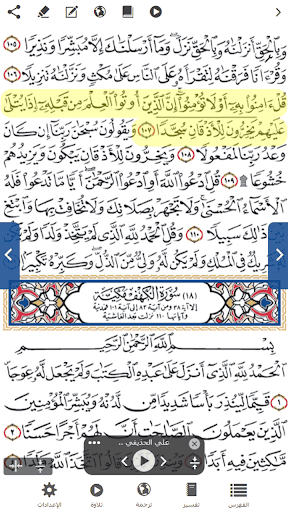 وَبِالْحَقِّ أَنزَلْنَٰهُ وَبِالْحَقِّ نَزَلَ وَمَآ أَرْسَلْنَٰكَ إِلَّا مُبَشِّرًا وَنَذِيرًا ١٠٥
وَقُرْءَانًا فَرَقْنَٰهُ لِتَقْرَأَهُۥ عَلَى النَّاسِ عَلَىٰ مُكْثٍ وَنَزَّلْنَٰهُ تَنزِيلًا ١٠٦
قُلْ ءَامِنُوا۟ بِهِۦٓ أَوْ لَا تُؤْمِنُوٓا۟ إِنَّ الَّذِينَ أُوتُوا۟ الْعِلْمَ مِن قَبْلِهِۦٓ إِذَا يُتْلَىٰ
عَلَيْهِمْ يَخِرُّونَ لِلْأَذْقَانِ سُجَّدًا ١٠٧ وَيَقُولُونَ سُبْحَٰنَ رَبِّنَآ إِن كَانَ
وَعْدُ رَبِّنَا لَمَفْعُولًا ١٠٨ وَيَخِرُّونَ لِلْأَذْقَانِ يَبْكُونَ وَيَزِيدُهُمْ
خُشُوعًا ١٠٩ قُلِ ادْعُوا۟ اللَّهَ أَوِ ادْعُوا۟ الرَّحْمَٰنَ أَيًّا مَّا تَدْعُوا۟ فَلَهُ
الْأَسْمَآءُ الْحُسْنَىٰ وَلَا تَجْهَرْ بِصَلَاتِكَ وَلَا تُخَافِتْ بِهَا وَابْتَغِ
بَيْنَ ذَٰلِكَ سَبِيلًا ١١٠ وَقُلِ الْحَمْدُ لِلَّهِ الَّذِى لَمْ يَتَّخِذْ وَلَدًا وَلَمْ يَكُن
شَرِيكٌ فِى الْمُلْكِ وَلَمْ يَكُن لَّهُۥ وَلِىٌّ مِّنَ الذُّلِّ وَكَبِّرْهُ تَكْبِيرًا
(١٨) سُورَةُ الْكَهْفِ مَكِّيَّة
إلا آية ٣٨ ومن آية ٨٣ إلى آية ١٠١ فمدنية
وآياتها ١١٠ نزلت بعد الغاشية
بِسْمِ اللَّهِ الرَّحْمَٰنِ الرَّحِيمِ
الْحَمْدُ لِلَّهِ الَّذِىٓ أَنزَلَ عَلَىٰ عَبْدِهِ الْكِتَٰبَ وَلَمْ يَجْعَل لَّهُۥ عِوَجَا
١ قَيِّمًا لِّيُنذِرَ بَأْسًا شَدِيدًا مِّن لَّدُنْهُ وَيُبَشِّرَ الْمُؤْمِنِينَ
الَّذِينَ يَعْمَلُونَ الصَّٰلِحَٰتِ أَنَّ لَهُمْ أَجْرًا حَسَنًا ٢
مَّٰكِثِينَ فِيهِ أَبَدًا
علي الحذيفي ..
الفهرس تفسير ترجمة تلاوة الإعدادات